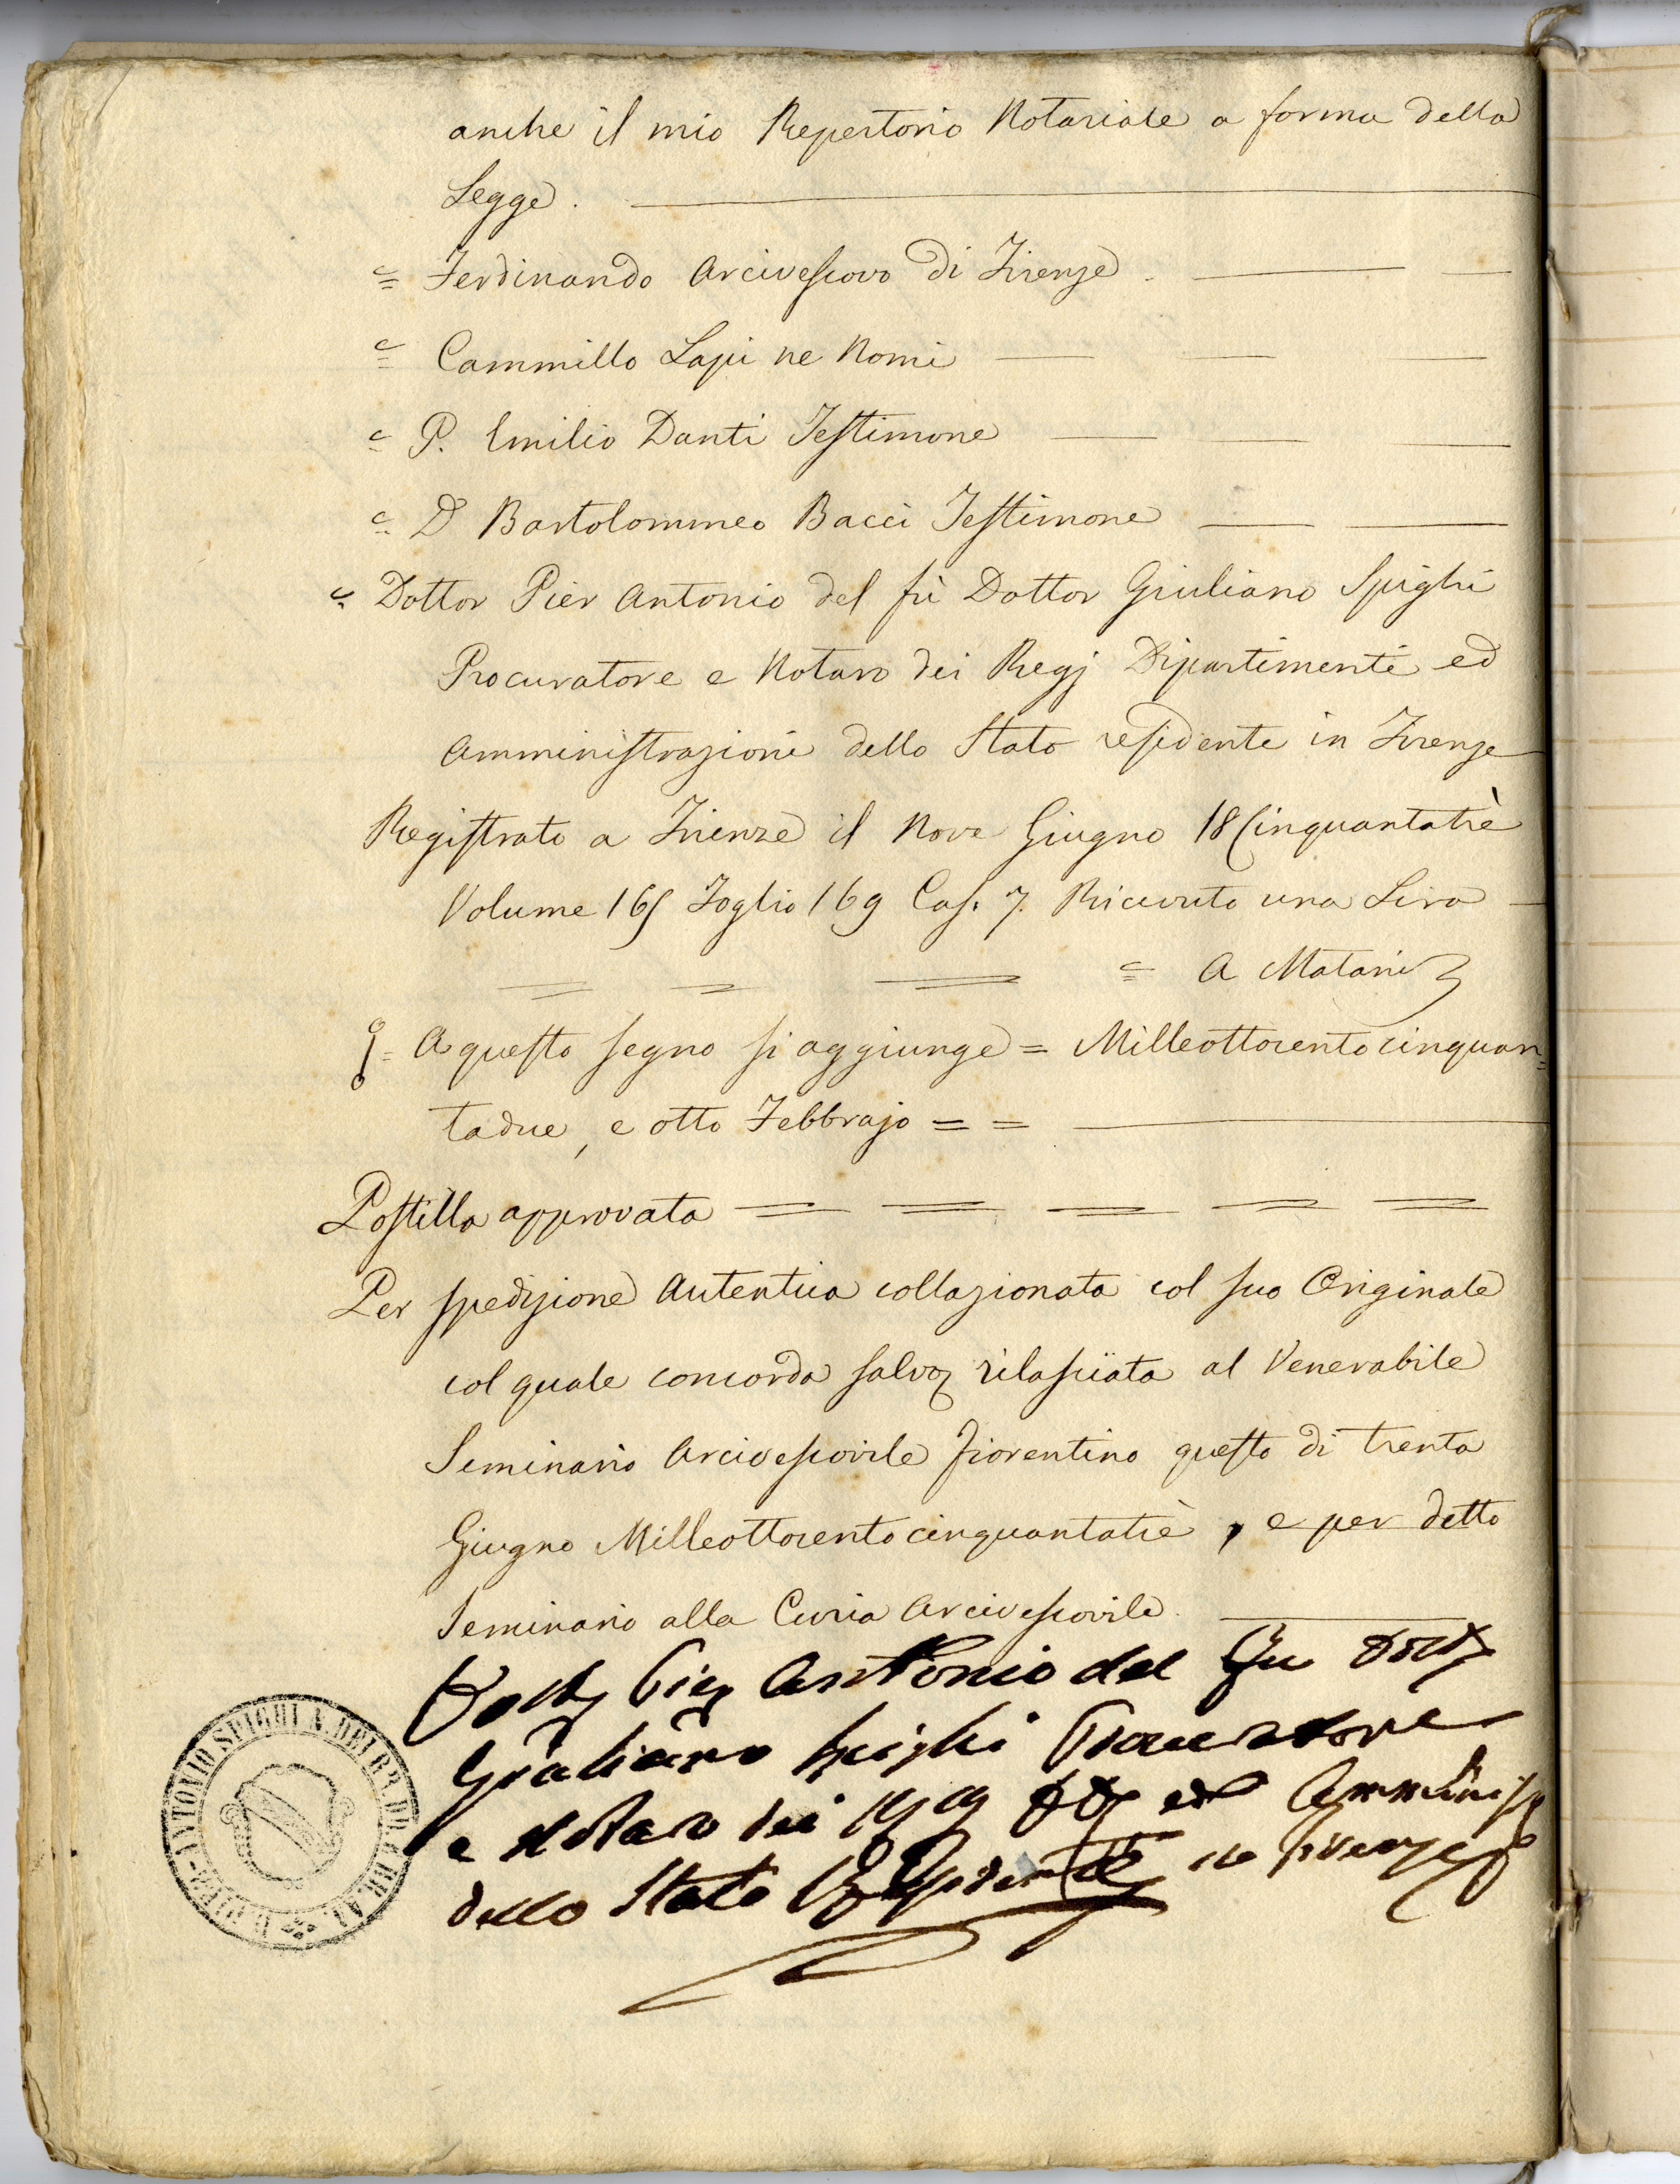 anche il mio Repertorio Notariale a forma della
Legge.
= Ferdinando Arcivescovo di Firenze.
= Cammillo Lapi ne Nomi
= P. Emilio Danti Testimone
= D Bartolommeo Bacci Testimone
= Dottor Pier Antonio del fù Dottor Giuliano Spighi
Procuratore e Notaro dei Regj Dipartimenti ed
Amministrazioni dello Stato residente in Firenze
Registrato a Firenze il Nove Giugno 18Cinquantatrè
Volume 165 Foglio 169 Cas. 7. Ricevuto una Lira
= A Matani
= A questo segno si aggiunge = Milleottocentocinquan=
tadue, e otto Febbrajo = =
Postilla approvata
Per spedizione Autentica collazionata col suo Originale
col quale concorda salvo rilasciata al Venerabile
Seminario Arcivescovile fiorentino questo dì trenta
Giugno Milleottocentocinquantatrè, e per detto
Seminario alla Curia Arcivescovile.
Pier Antonio del Fu
Giuliano Spighi Procuratore
e Notaro dei ed Amminis
dello Stato Residente in Firenze
PIER-ANTONIO SPIGHI N. DEI RR. DD.